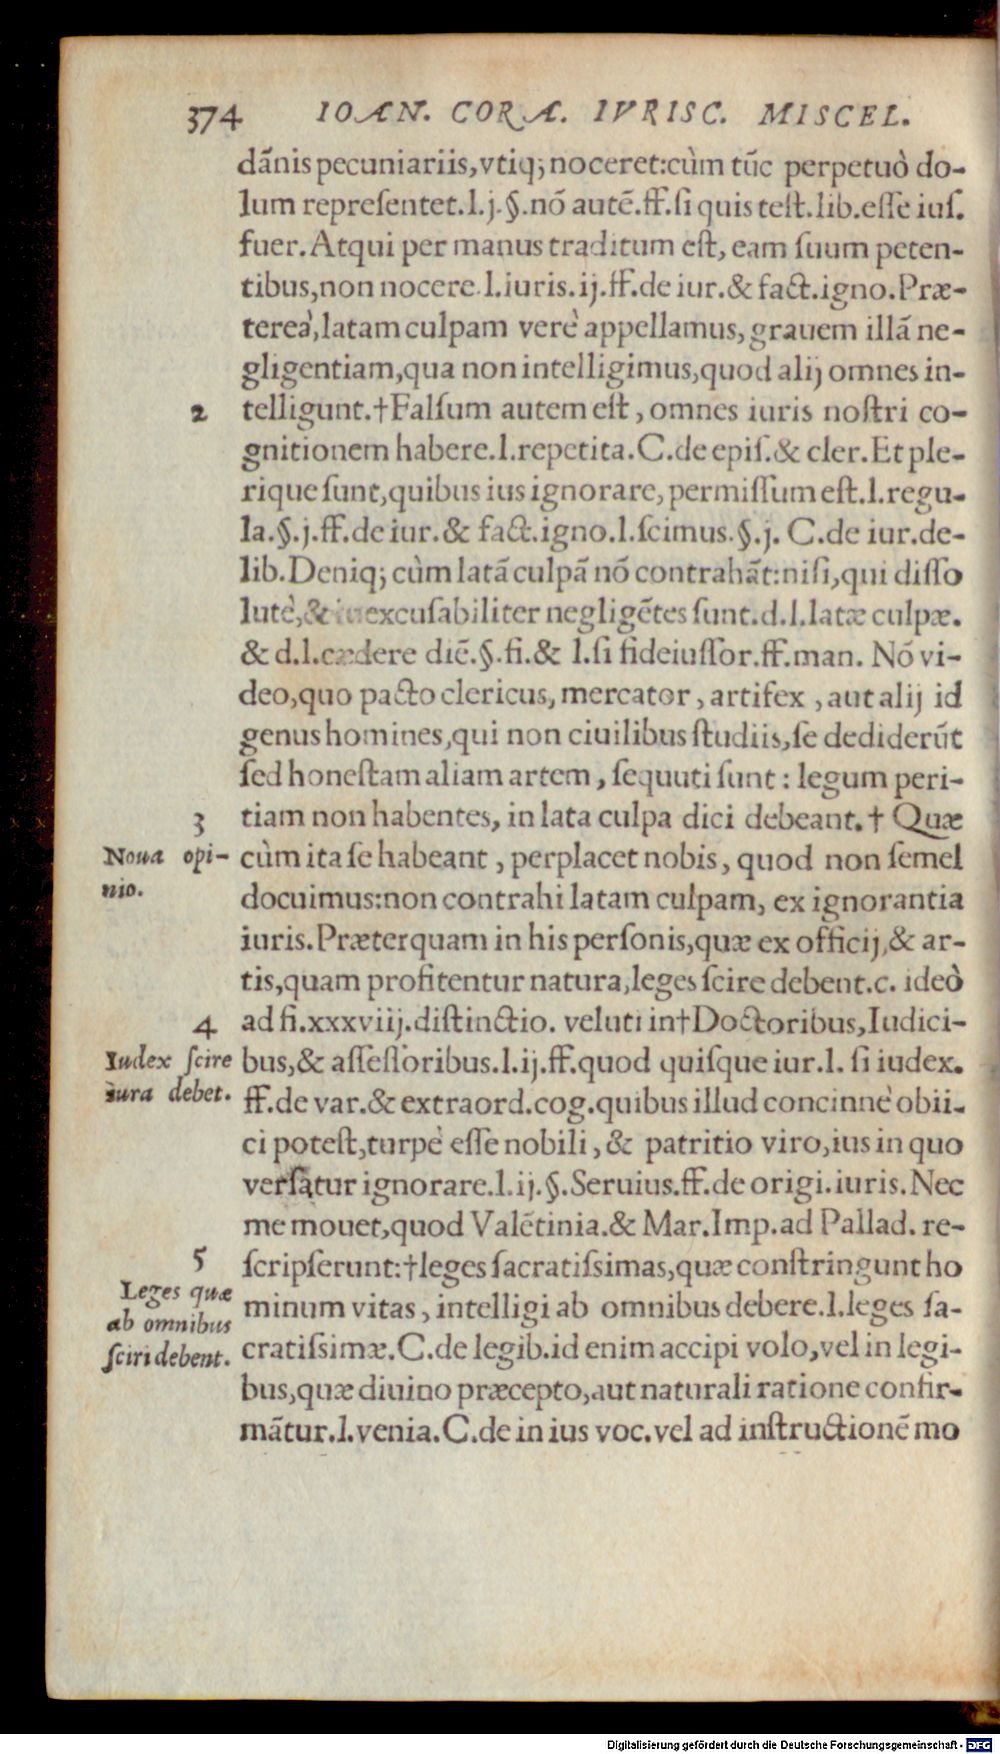 374 IOAN. CORA. IVRISC. MISCEL.
dãnis pecuniariis, vtiq; noceret: cùm tũc perpetuò do-
lum repreſentet. l. j. §. nõ autẽ. ff. ſi quis teſt. lib. eſſe iuſ.
fuer. Atqui per manus traditum eſt, eam ſuum peten-
tibus, non nocere. l. iuris. ij. ff. de iur. & fact. igno. Præ-
tereà, latam culpam verè appellamus, grauem illã ne-
gligentiam, qua non intelligimus, quod alij omnes in-
2 telligunt. †Falſum autem eſt, omnes iuris noſtri co-
gnitionem habere. l. repetita. C. de epiſ. & cler. Et ple-
rique ſunt, quibus ius ignorare, permiſſum eſt. l. regu-
la. §. j. ff. de iur. & fact. igno. l. ſcimus. §. j. C. de iur. de-
lib. Deniq; cùm latã culpã nõ contrahãt: niſi, qui diſſo
lutè, & inexcuſabiliter negligẽtes ſunt. d. l. latæ culpæ.
& d. l. cædere diẽ. §. fi. & l. ſi fideiuſſor. ff. man. Nõ vi-
deo, quo pacto clericus, mercator, artifex, aut alij id
genus homines, qui non ciuilibus ſtudiis, ſe dediderũt
ſed honeſtam aliam artem, ſequuti ſunt: legum peri-
3 tiam non habentes, in lata culpa dici debeant. † Quæ
Noua opi-
nio.
cùm ita ſe habeant, perplacet nobis, quod non ſemel
docuimus: non contrahi latam culpam, ex ignorantia
iuris. Præterquam in his perſonis, quæ ex officij, & ar-
tis, quam profitentur natura, leges ſcire debent. c. ideò
4 ad fi. xxxviij. diſtinctio. veluti in †Doctoribus, Iudici-
Iudex ſcire
iura debet.
bus, & aſſeſſoribus. l. ij. ff. quod quiſque iur. l. ſi iudex.
ff. de var. & extraord. cog. quibus illud concinnè obii-
ci poteſt, turpè eſſe nobili, & patritio viro, ius in quo
verſatur ignorare. l. ij. §. Seruius. ff. de origi. iuris. Nec
me mouet, quod Valẽtinia. & Mar. Imp. ad Pallad. re-
5 ſcripſerunt: †leges ſacratiſsimas, quæ conſtringunt ho
Leges quæ
ab omnibus
ſciri debent.
minum vitas, intelligi ab omnibus debere. l. leges ſa-
cratiſsimæ. C. de legib. id enim accipi volo, vel in legi-
bus, quæ diuino præcepto, aut naturali ratione confir-
mãtur. l. venia. C. de in ius voc. vel ad inſtructionẽ mo
Digitalisierung gefördert durch die Deutsche Forschungsgemeinschaft - DFG